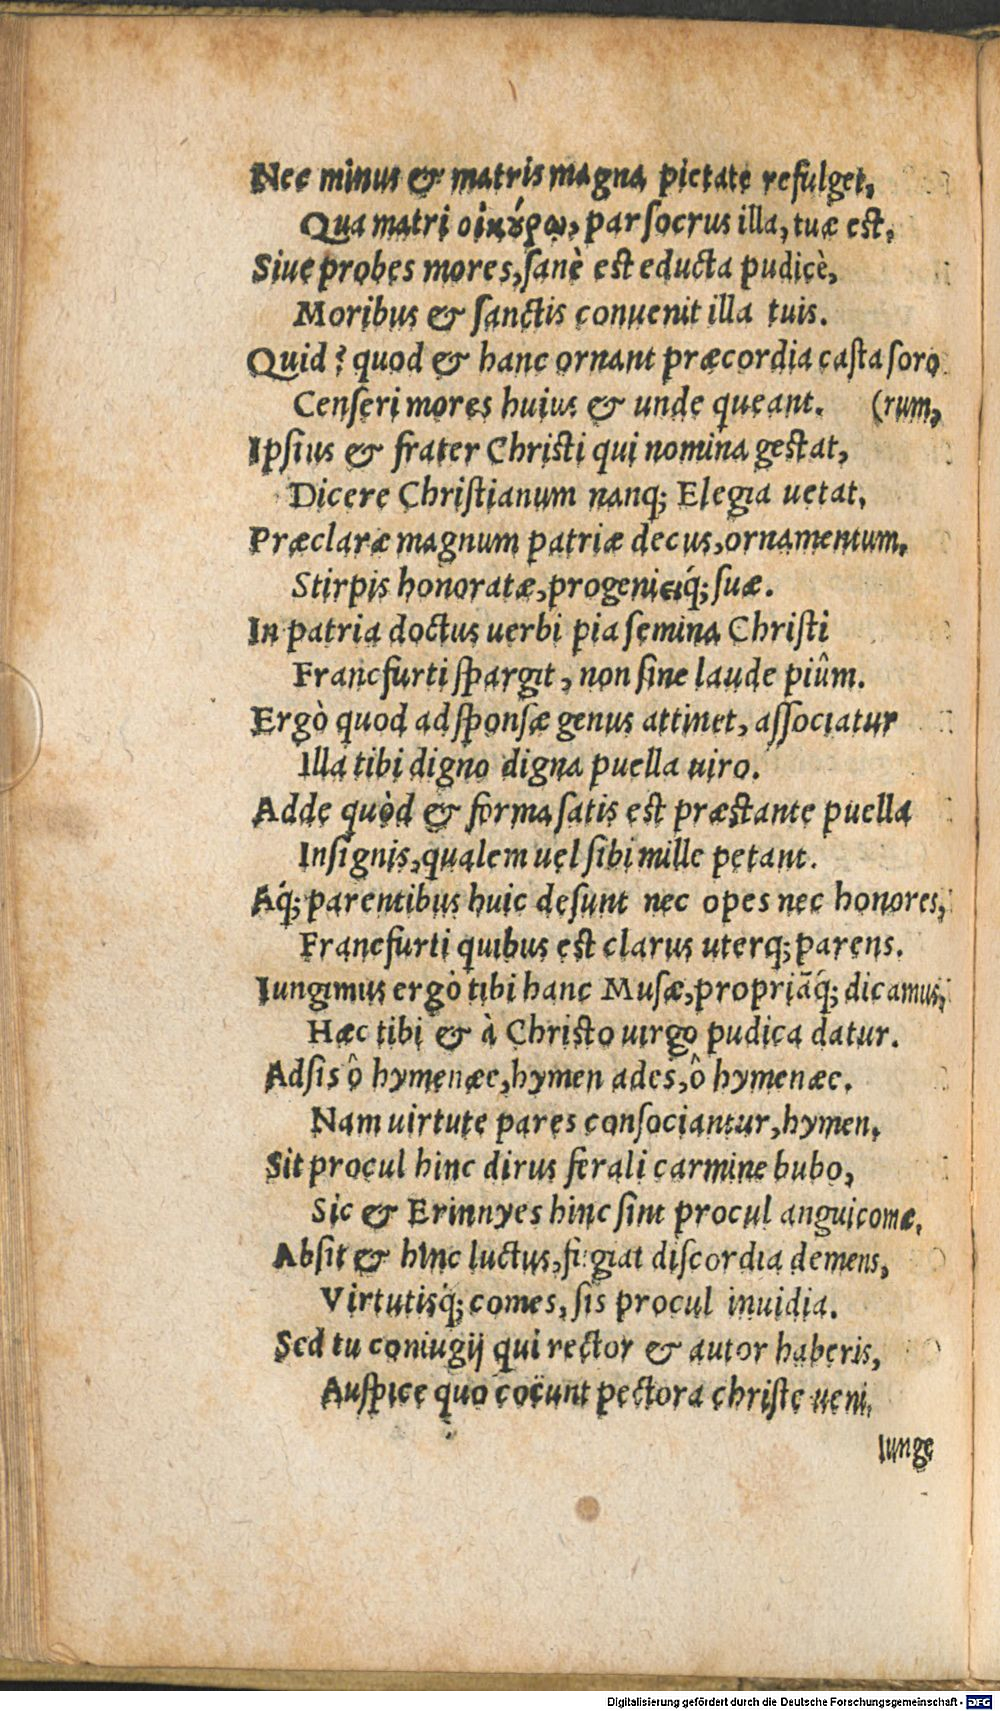 Nec minus & matris magna pietate refulget,
Qua matri οἰκȣ́ρῳ, par socrus illa, tuæ est,
Siue probes mores, sanè est educta pudicè,
Moribus & sanctis conuenit illa tuis.
Quid? quod & hanc ornant præcordia casta soro
Censeri mores huius & unde queant. (rum,
Ipsius & frater Christi qui nomina gestat,
Dicere Christianum nanq; Elegia uetat,
Præclaræ magnum patriæ decus, ornamentum,
Stirpis honoratæ, progenieíq; suæ.
In patria doctus uerbi pia semina Christi
Francfurti spargit, non sine laude piûm.
Ergò quod ad sponsæ genus attinet, associatur
Illa tibi digno digna puella uiro.
Adde quòd & forma satis est præstante puella
Insignis, qualem uel sibi mille petant.
Aq́; parentibus huic desunt nec opes nec honores,
Francfurti quibus est clarus uterq; parens.
Iungimus ergò tibi hanc Musæ, propriãq́; dicamus,
Hæc tibi & à Christo uirgo pudica datur.
Adsis ô hymenæe, hymen ades, ô hymenæe.
Nam uirtute pares consociantur, hymen,
Sit procul hinc dirus ferali carmine bubo,
Sic & Erinnyes hinc sint procul anguicomæ,
Absit & hinc luctus, fugiat discordia demens,
Virtutisq́; comes, sis procul inuidia.
Sed tu coniugij qui rector & autor haberis,
Auspice quo coëunt pectora christe ueni,
Iunge
Digitalisierung gefördert durch die Deutsche Forschungsgemeinschaft - DFG